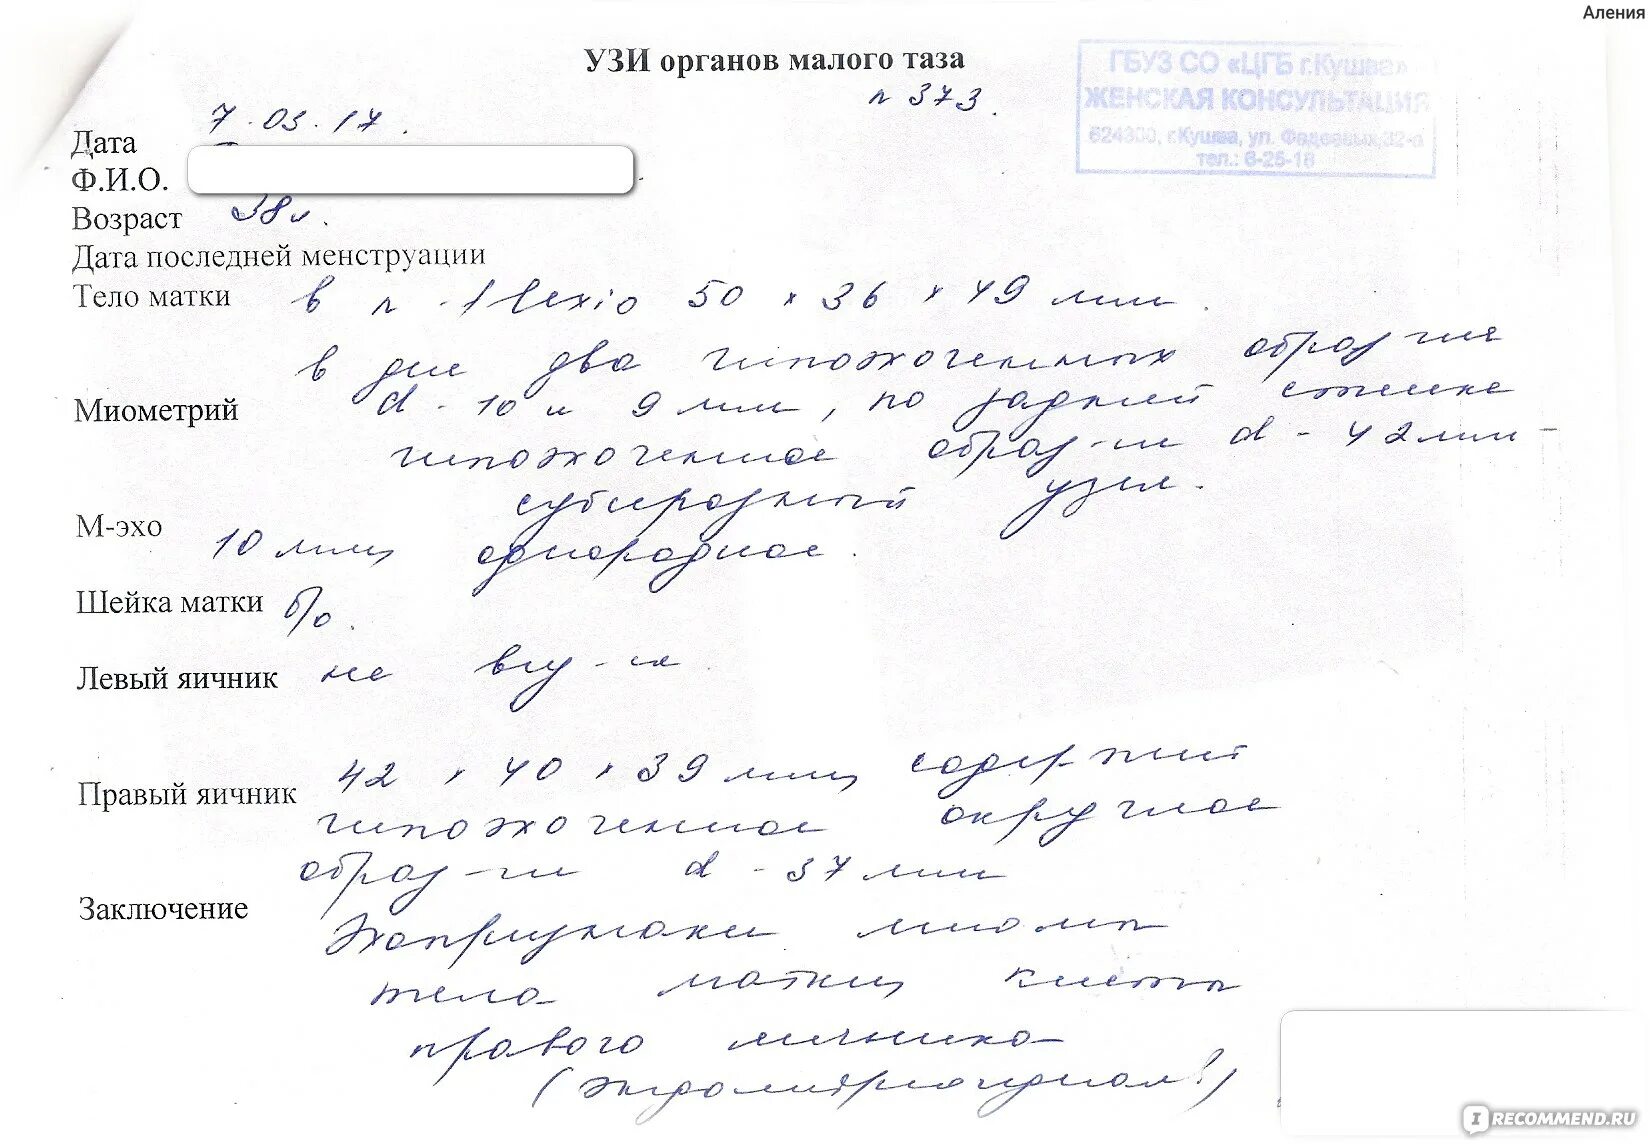 Аления
УЗИ органов малого таза
ГБУЗ СО «ЦГБ г.Кушва»
ЖЕНСКАЯ КОНСУЛЬТАЦИЯ
624300, г.Кушва, ул. 32-а
тел.: 6-25-18
№ 373.
Дата 7.03.17.
Ф.И.О.
Возраст 38 л.
Дата последней менструации
Тело матки в n - flexio 50 × 36 × 49 мм.
в дне два гипоэхогенных образ-ия
Миометрий d - 10 и 9 мм, по задней стенке
гипоэхогенное образ-ие d - 42 мм -
субсерозный узел.
М-эхо 10 мм, однородное.
Шейка матки б/о.
Левый яичник не виз-ся
Правый яичник 42 × 40 × 39 мм, содержит
гипоэхогенное округлое
образ-ие d - 37 мм
Заключение Эхопризнаки миомы
тела матки, кисты
правого яичника
(эндометриоидная?)
IRECOMMEND.RU